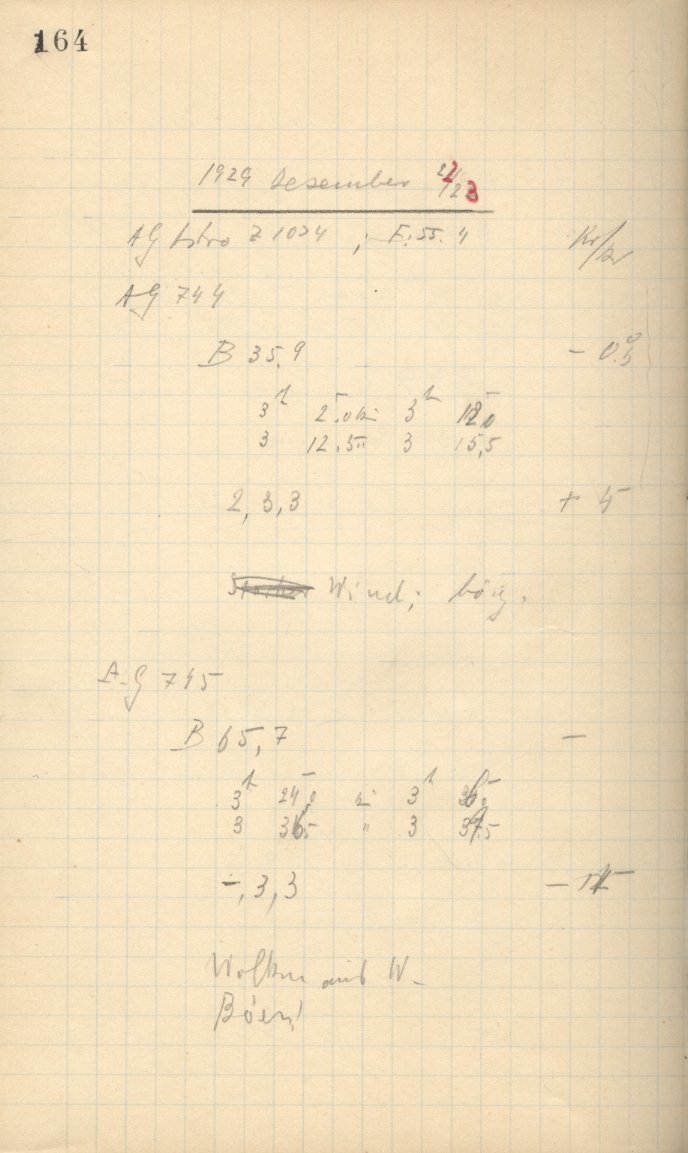 164
1929 Dezember 22/23
AG Astro Z 1024 ; F: 55. 4 Kr/Kr
AG 744
B 35,9 - 0.5
3h 2.0 bis 3h 12,0
3 12.5 " 3 15,5
2, 3, 3 + 5
Wind; böig.
AG 745
B 65,7 -
3h 24,0 bis 3h 36,0
3 36,5 " 3 39,5
-, 3, 3 -
Wolken aus W.
Böen!